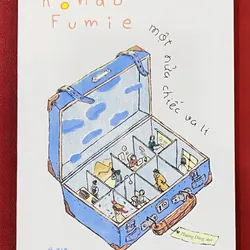 Kondo
Fumie
một nửa chiếc va li